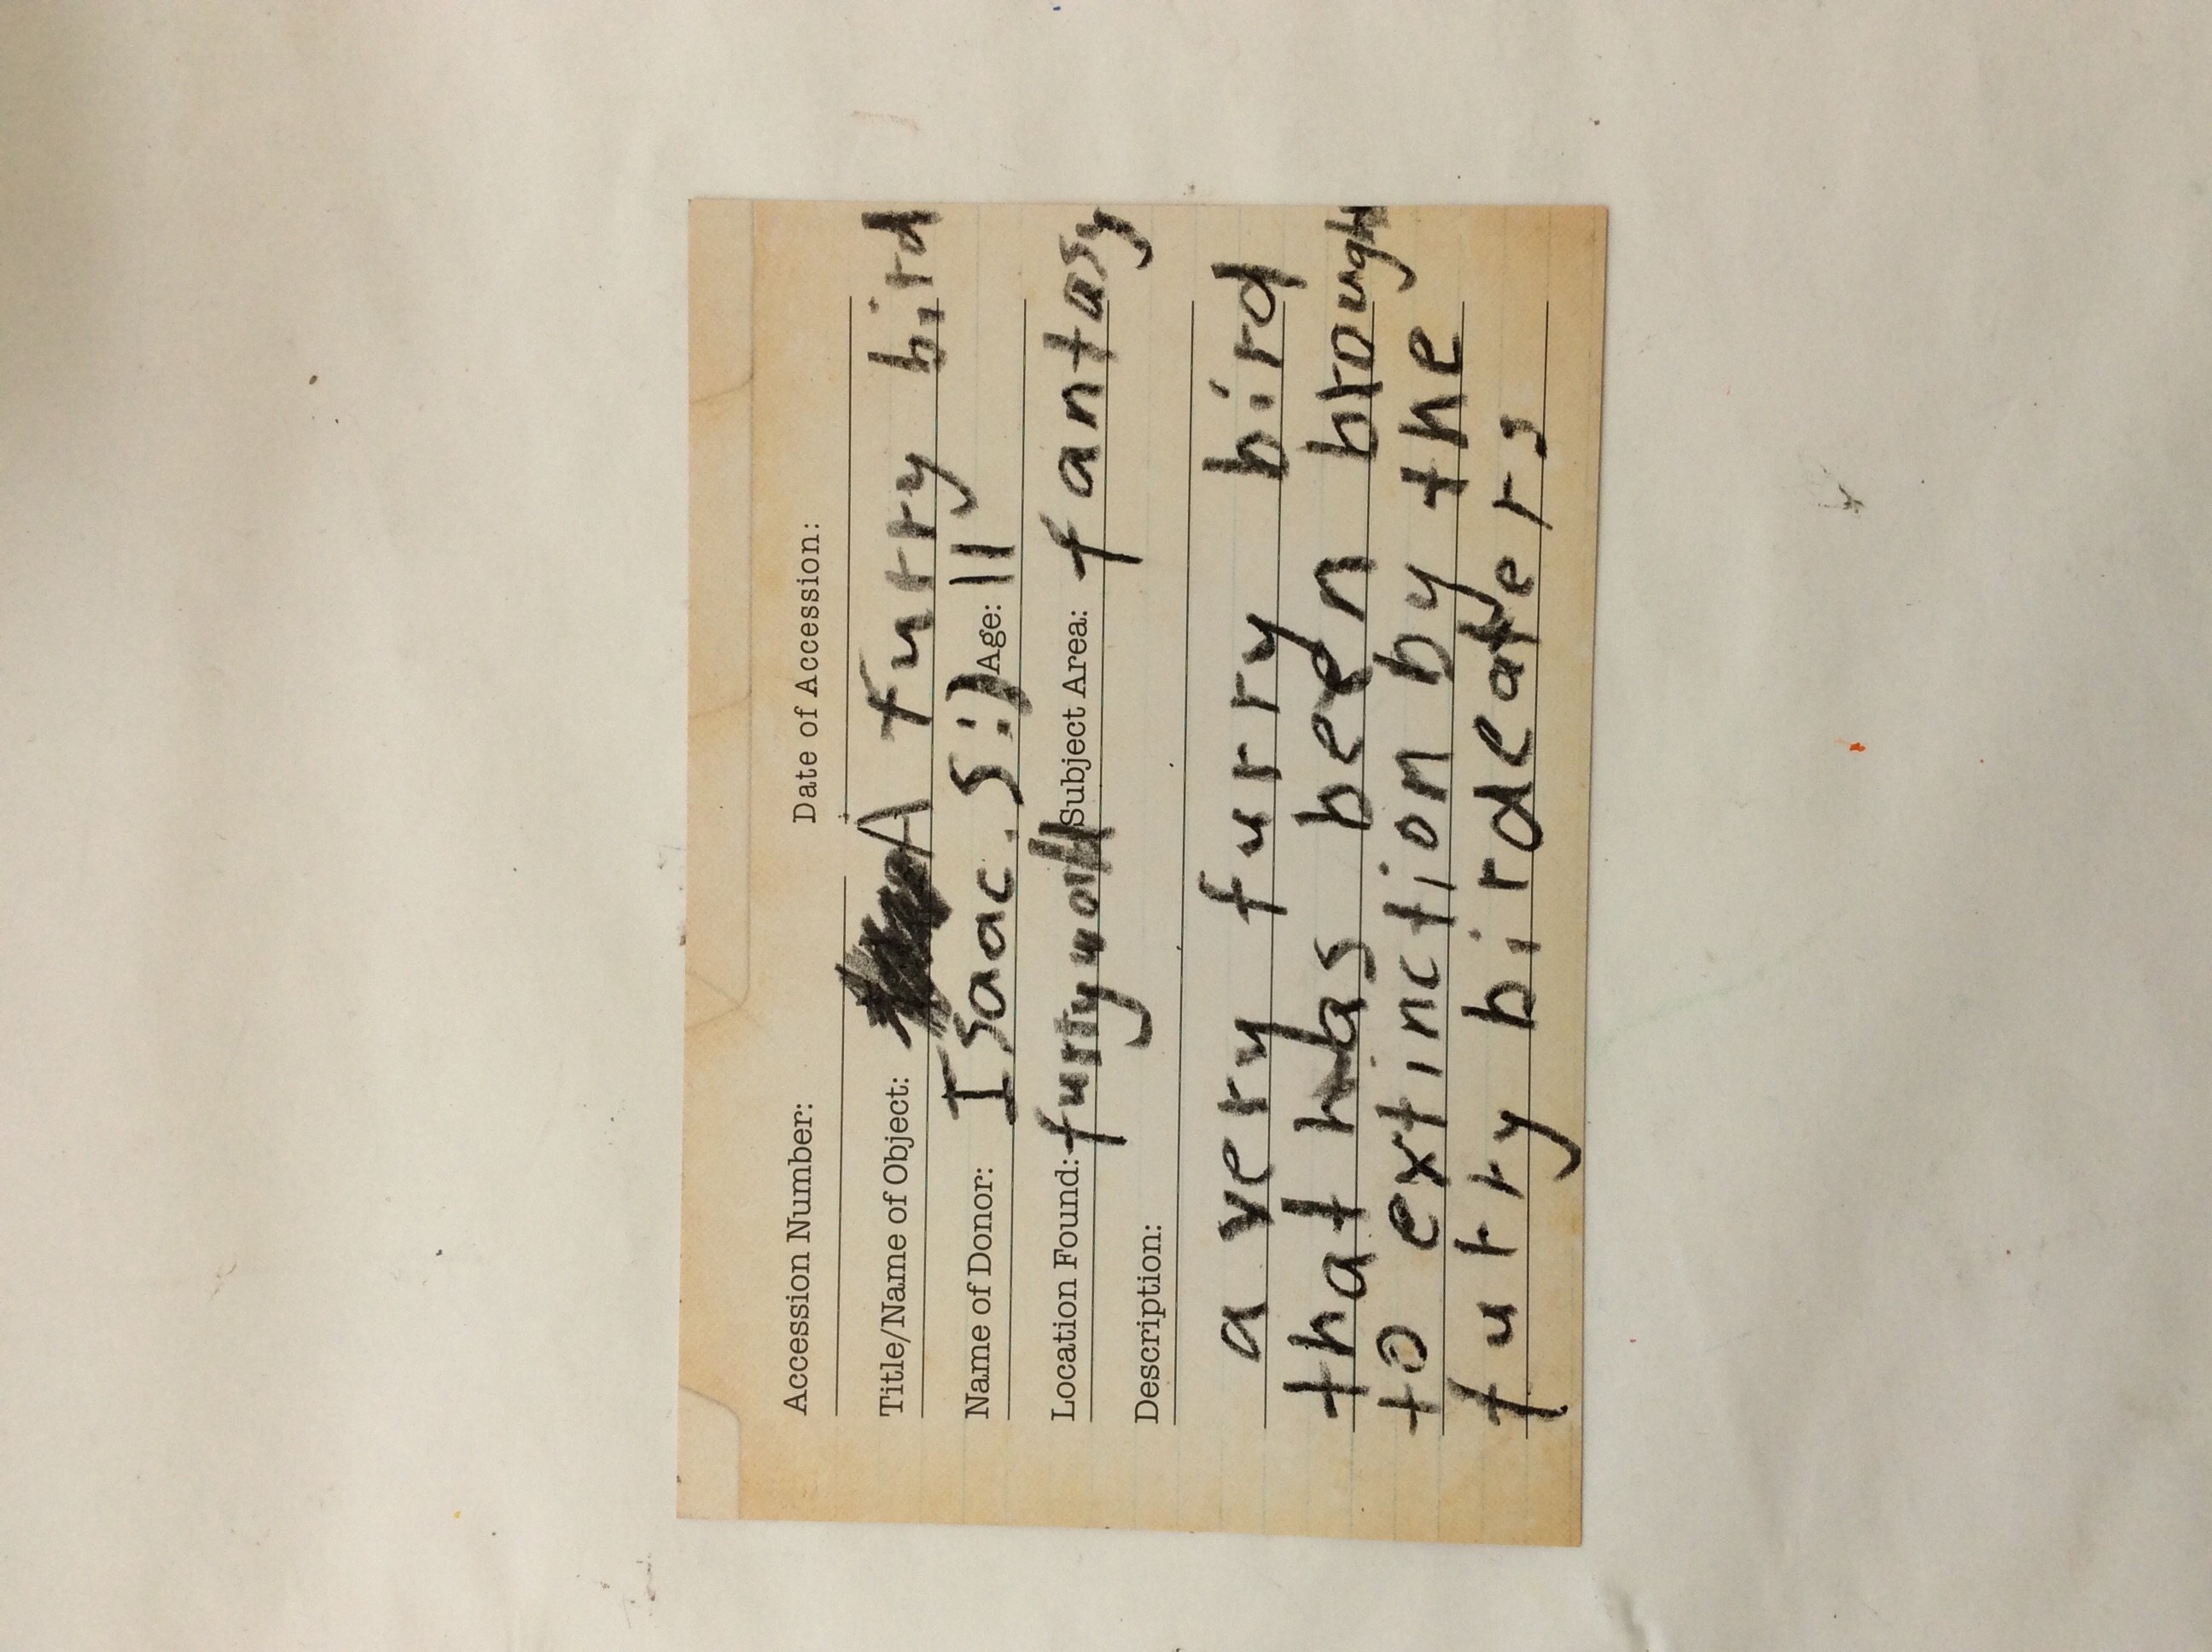 Accession Number: Date of Accession:
Title/Name of Object: A furry bird
Name of Donor: Isaac. S :) Age: 11
Location Found: Subject Area: fantasy
Description:
a very furry bird
that has been brought
to extinction by the
furry birdeaters